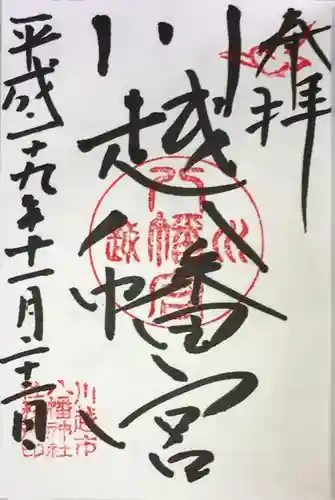 奉拝
川越八幡宮
平成二十九年十一月二十三日
川越
八幡宮
川越市
八幡神社